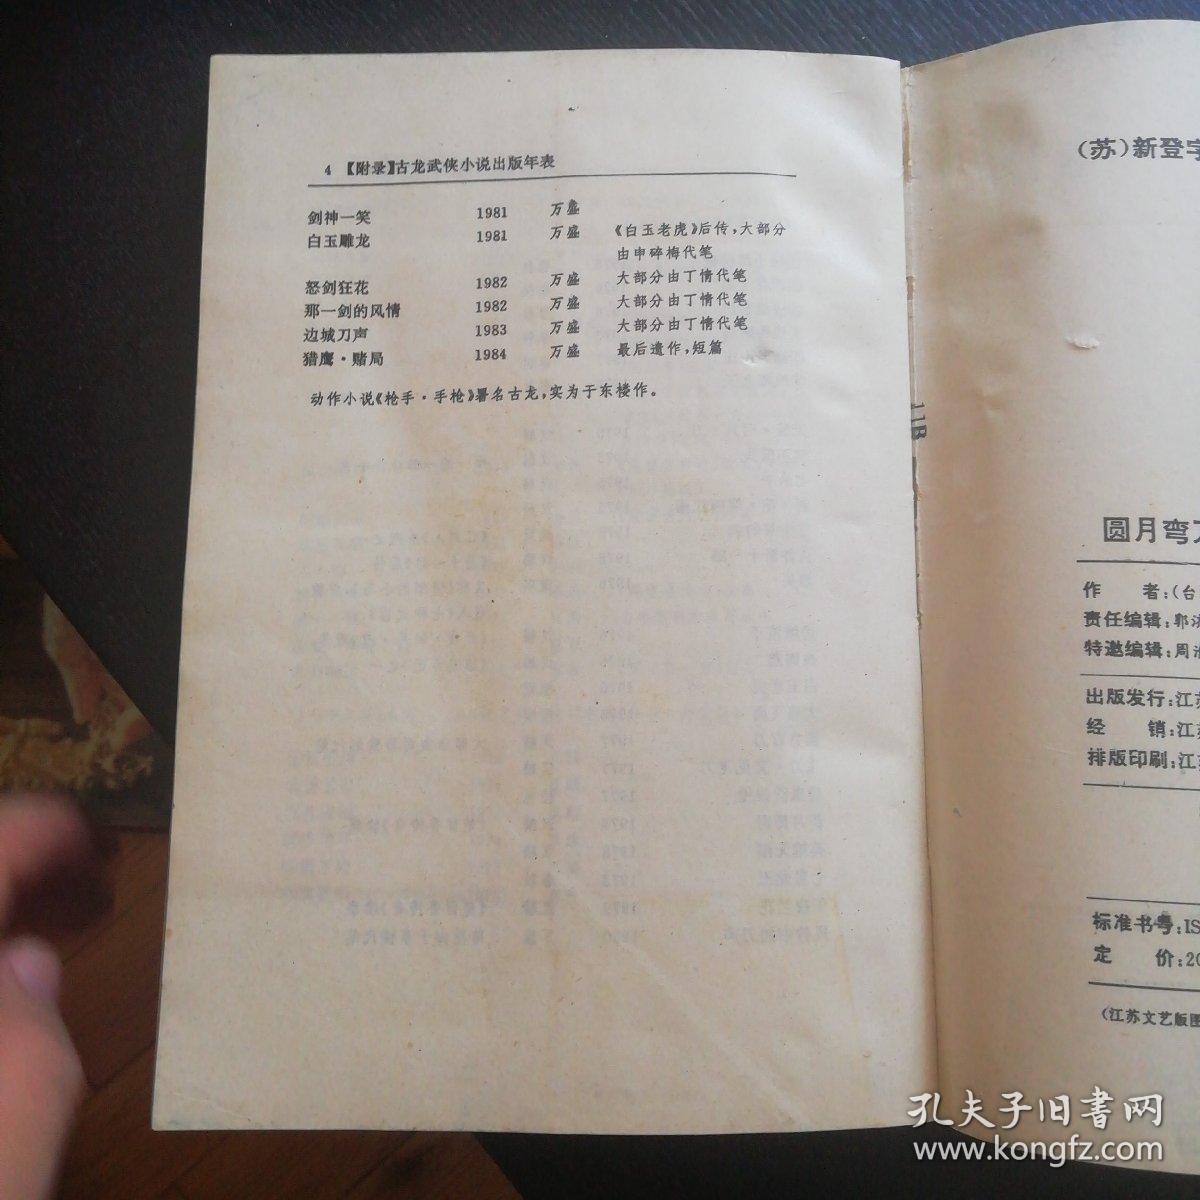 4 【附录】古龙武侠小说出版年表
剑神一笑 1981 万盛
白玉雕龙 1981 万盛 《白玉老虎》后传,大部分
由申碎梅代笔
怒剑狂花 1982 万盛 大部分由丁情代笔
那一剑的风情 1982 万盛 大部分由丁情代笔
边城刀声 1983 万盛 大部分由丁情代笔
猎鹰·赌局 1984 万盛 最后遗作,短篇
动作小说《枪手·手枪》署名古龙,实为于东楼作。
(苏)新登字
圆月弯
作 者:(台
责任编辑:郭
特邀编辑:周
出版发行:江苏
经 销:江苏
排版印刷:江
标准书号:IS
定 价:20
(江苏文艺版图
孔夫子旧书网
www.kongfz.com